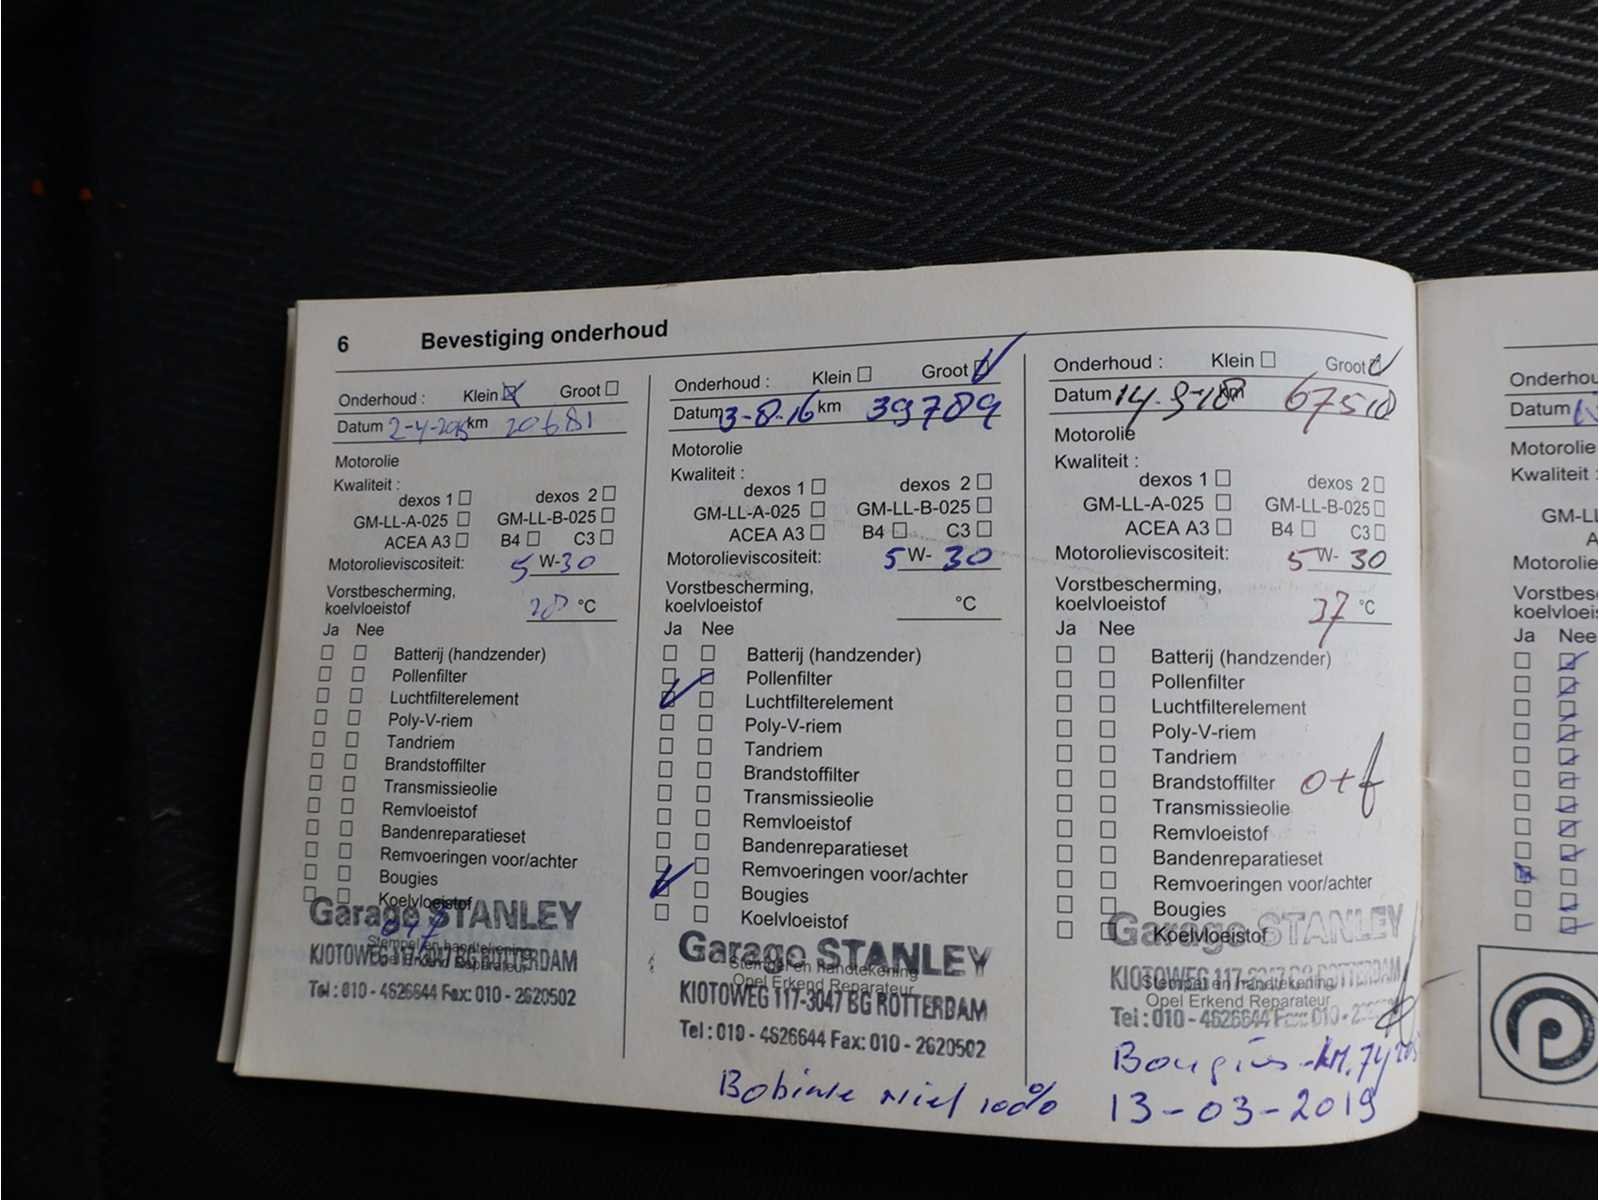 6 Bevestiging onderhoud
Onderhoud : Klein Groot
Datum 2-4-2015 km 20681
Motorolie
Kwaliteit :
dexos 1 dexos 2
GM-LL-A-025 GM-LL-B-025
ACEA A3 B4 C3
Motorolieviscositeit: 5 W-30
Vorstbescherming,
koelvloeistof °C
Ja Nee
Batterij (handzender)
Pollenfilter
Luchtfilterelement
Poly-V-riem
Tandriem
Brandstoffilter
Transmissieolie
Remvloeistof
Bandenreparatieset
Remvoeringen voor/achter
Bougies
Koelvloeistof
Garage STANLEY
Stempel en handtekening
KIOTOWEG 117-3047 BG ROTTERDAM
Opel Erkend Reparateur
Tel : 010 - 4626644 Fax: 010 - 2620502
Onderhoud : Klein Groot
Datum 3-8-16 km 39789
Motorolie
Kwaliteit :
dexos 1 dexos 2
GM-LL-A-025 GM-LL-B-025
ACEA A3 B4 C3
Motorolieviscositeit: 5 W- 30
Vorstbescherming,
koelvloeistof °C
Ja Nee
Batterij (handzender)
Pollenfilter
Luchtfilterelement
Poly-V-riem
Tandriem
Brandstoffilter
Transmissieolie
Remvloeistof
Bandenreparatieset
Remvoeringen voor/achter
Bougies
Koelvloeistof
Garage STANLEY
Stempel en handtekening
Opel Erkend Reparateur
KIOTOWEG 117-3047 BG ROTTERDAM
Tel : 010 - 4626644 Fax: 010 - 2620502
Bobine niet 100%
Onderhoud : Klein Groot
Datum 14-9-18 km 67518
Motorolie
Kwaliteit :
dexos 1 dexos 2
GM-LL-A-025 GM-LL-B-025
ACEA A3 B4 C3
Motorolieviscositeit: 5 W- 30
Vorstbescherming,
koelvloeistof 37 °C
Ja Nee
Batterij (handzender)
Pollenfilter
Luchtfilterelement
Poly-V-riem
Tandriem
Brandstoffilter o+f
Transmissieolie
Remvloeistof
Bandenreparatieset
Remvoeringen voor/achter
Bougies
Koelvloeistof
Garage STANLEY
KIOTOWEG 117-3047 BG ROTTERDAM
Stempel en handtekening
Opel Erkend Reparateur
Tel : 010 - 4626644 Fax: 010 -
Bougies
13-03-2019
Onderhou
Datum
Motorolie
Kwaliteit :
GM-LL
A
Motorolie
Vorstbes
koelvloeis
Ja Nee